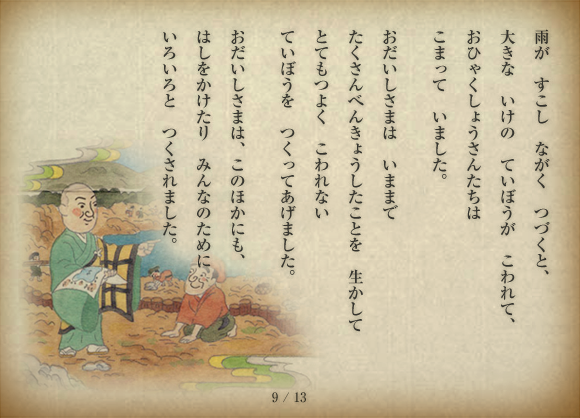 雨が　すこし　ながく　つづくと、
大きな　いけの　ていぼうが　こわれて、
おひゃくしょうさんたちは
こまって　いました。
おだいしさまは　いままで
たくさんべんきょうしたことを　生かして
とてもつよく　こわれない
ていぼうを　つくってあげました。
おだいしさまは、このほかにも、
はしをかけたり　みんなのために
いろいろと　つくされました。
9 / 13